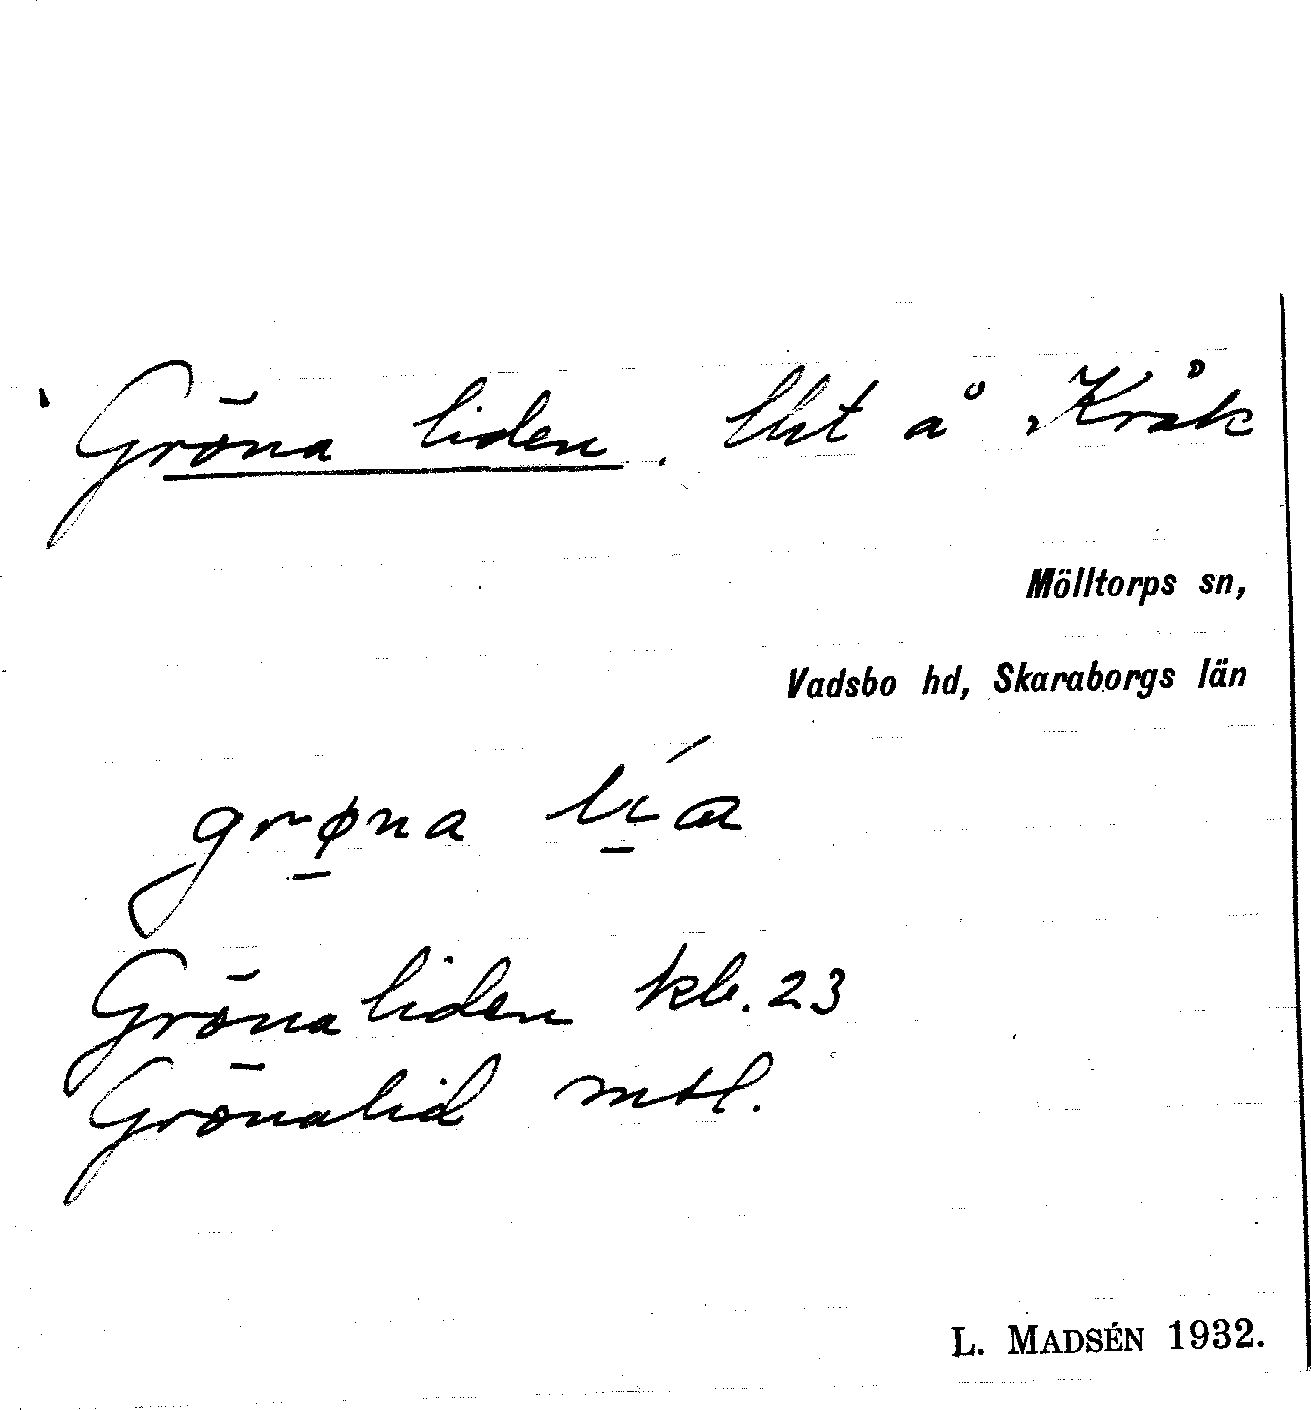 Gröna liden. lht å Kråk
Mölltorps sn,
Vadsbo hd, Skaraborgs län
grøna lía
Grönaliden kb. 23
Grönalid mtl.
L. MADSÉN 1932.